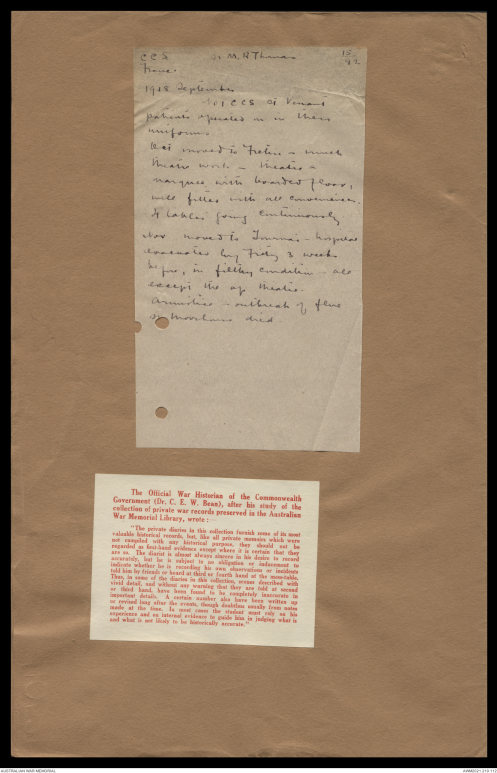 CCS Sr M. R Thomas 15/42
France.
1918 September
No 1 CCS St Venant
patients operated on in their
uniforms
Oct moved to Fretin - much
theatre work - theatre a
marquee with boarded floor,
well fitted with all conveniences.
4 tables going continuously
Nov moved to Tournai - hospital
evacuated by Fritz 3 weeks
before, in filthy condition - all
except the op theatre.
Armistice - outbreak of flue
Sr Moorhouse died.
The Official War Historian of the Commonwealth
Government (Dr. C. E. W. Bean), after his study of the
collection of private war records preserved in the Australian
War Memorial Library, wrote:—
"The private diaries in this collection furnish some of its most
valuable historical records, but, like all private memoirs which were
not compiled with any historical purpose, they should not be
regarded as first-hand evidence except where it is certain that they
are so. The diarist is almost always sincere in his desire to record
accurately, but he is subject to no obligation or inducement to
indicate whether he is recording his own observations or incidents
told him by friends or heard at third or fourth hand at the mess-table.
Thus, in some of the diaries in this collection, scenes described with
vivid detail, and without any warning that they are told at second
or third hand, have been found to be completely inaccurate in
important details. A certain number also have been written up
or revised long after the events, though doubtless usually from notes
made at the time. In most cases the student must rely on his
experience and on internal evidence to guide him in judging what is
and what is not likely to be historically accurate."
AUSTRALIAN WAR MEMORIAL